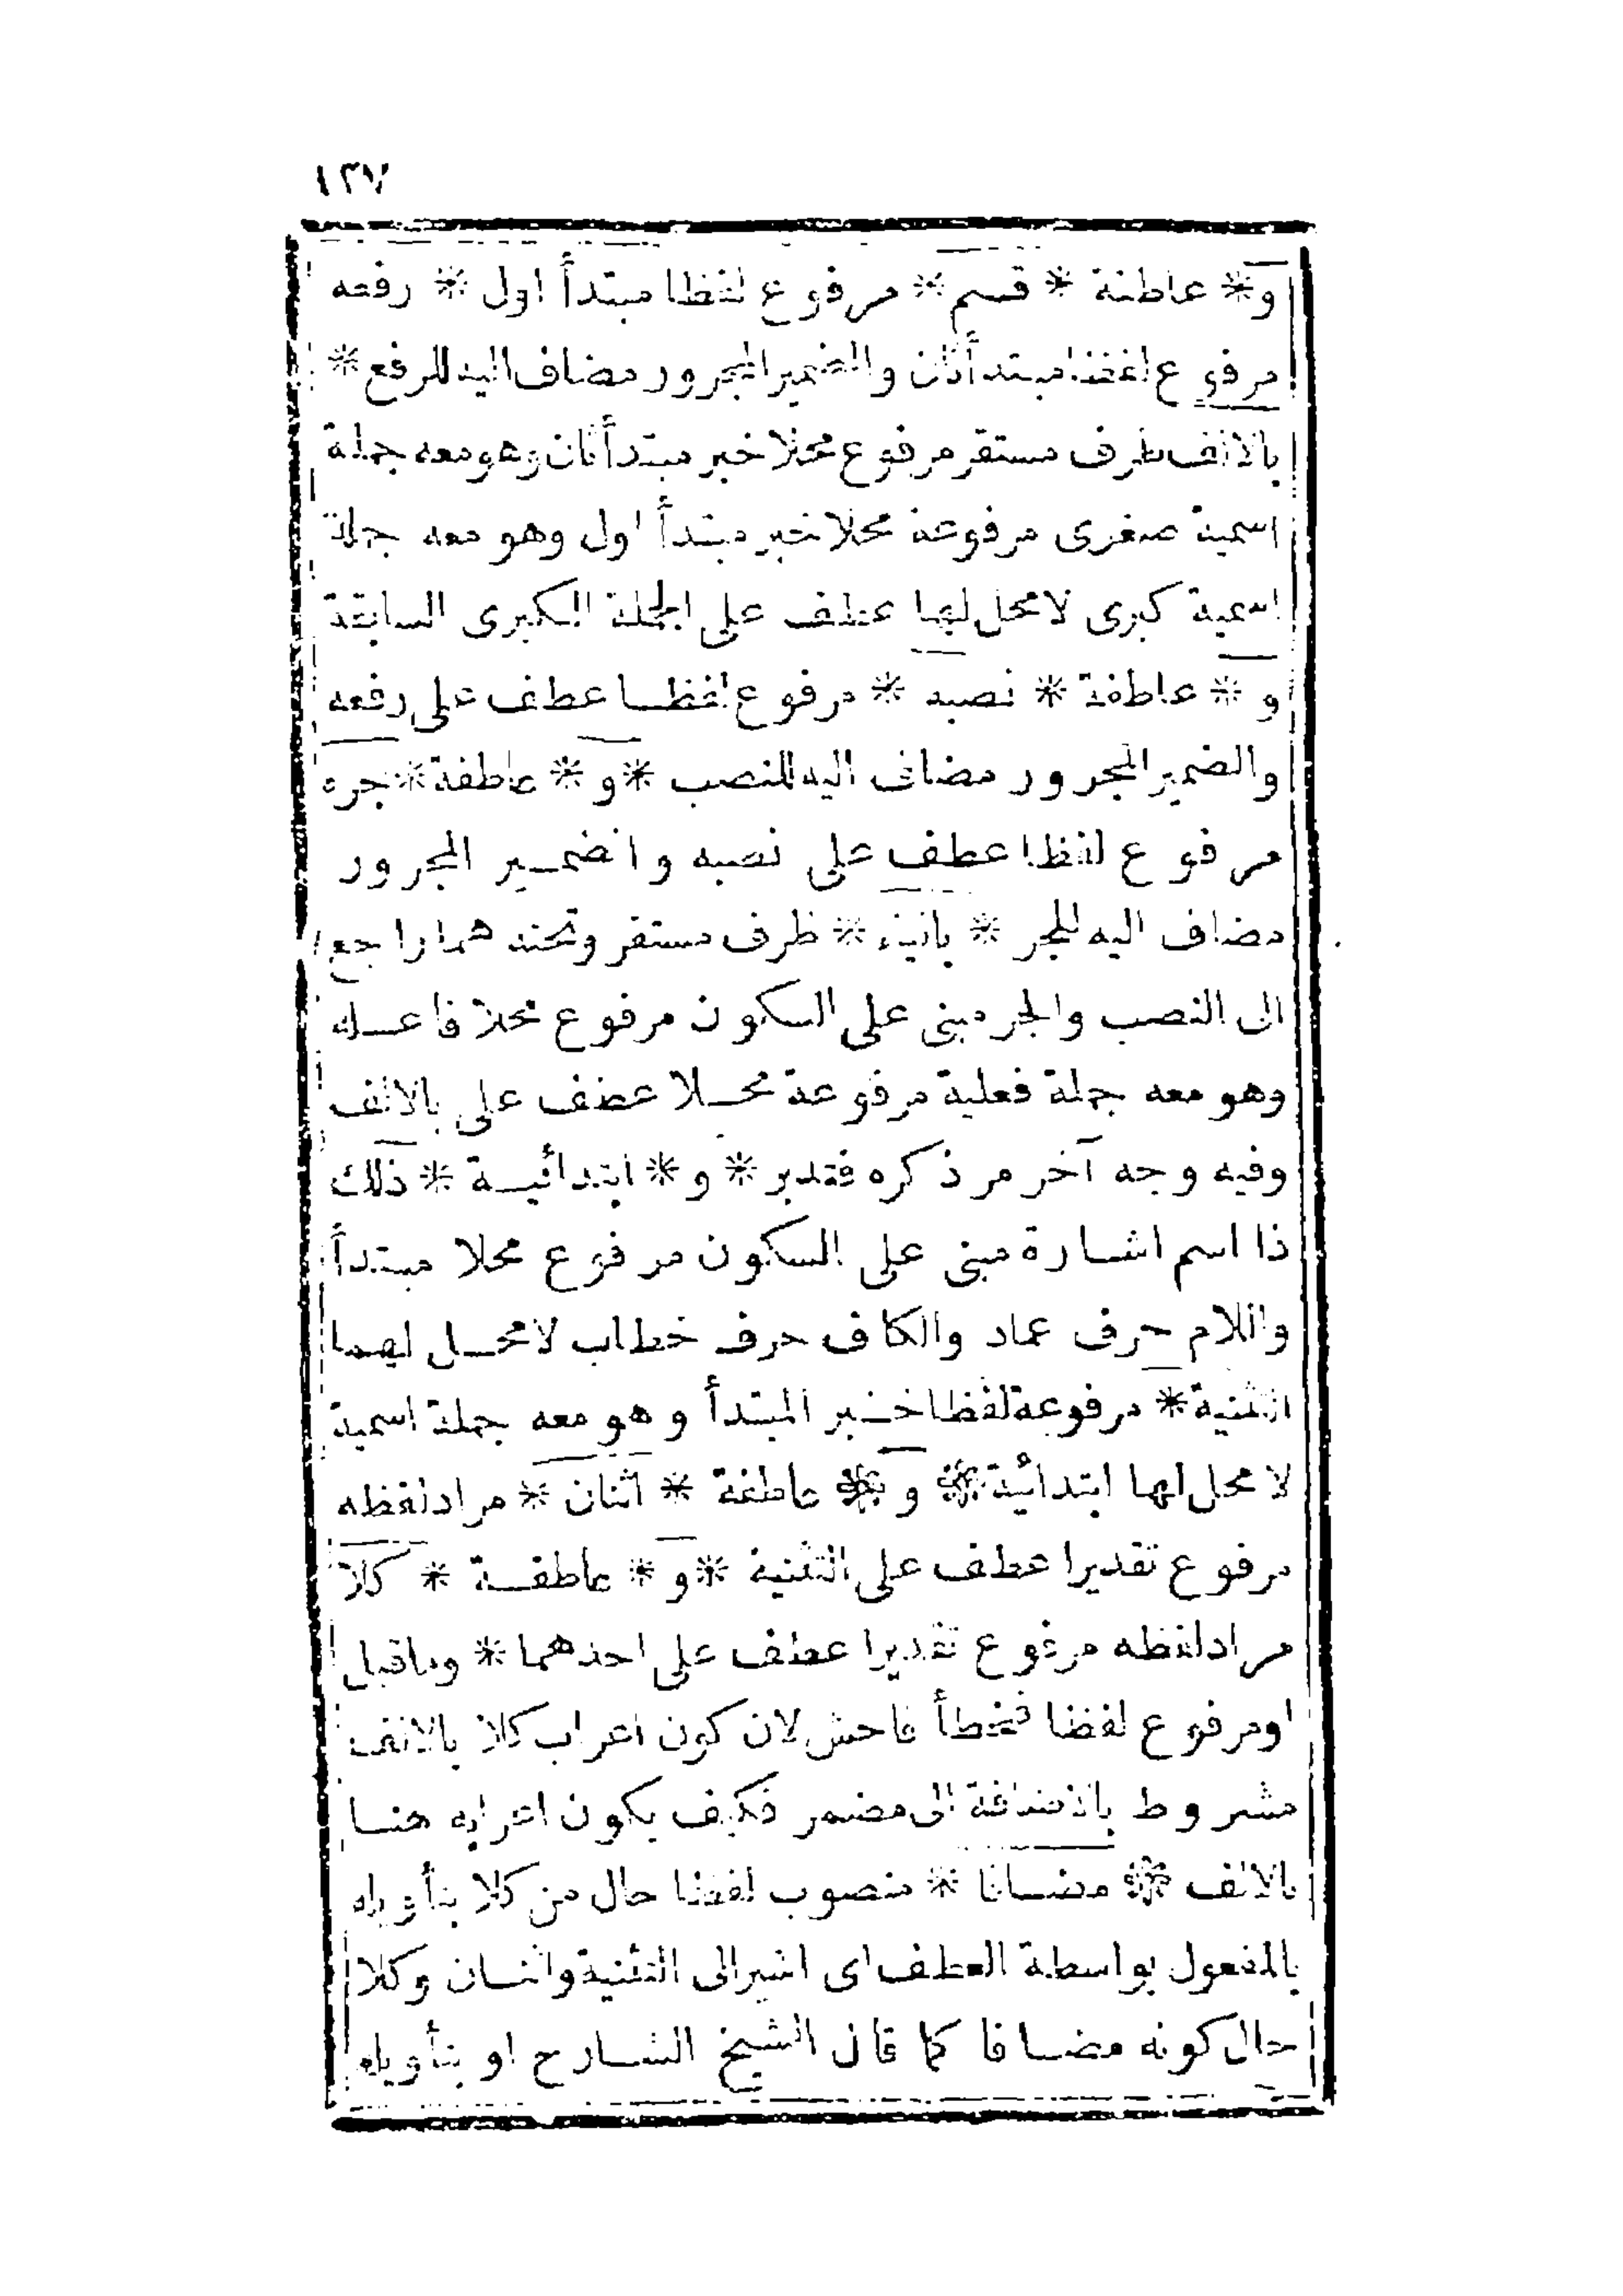 ١٢٧
و * عاطفة * قسم * مرفوع لفظا مبتدأ اول * رفعه
مرفوع لفظا مبتدأ ثان والضمير المجرور مضاف اليه للرفع *
بالالف ظرف مستقر مرفوع محلا خبر مبتدأ ثان وهو معه جملة
اسمية صغرى مرفوعة محلا خبر مبتدأ اول وهو معه جملة
اسمية كبرى لا محل لها عطف على الجملة الكبرى السابقة
و * عاطفة * نصبه * مرفوع لفظا عطف على رفعه
والضمير المجرور مضاف اليه للنصب * و * عاطفة * جره
مرفوع لفظا عطف على نصبه والضمير المجرور
مضاف اليه للجر * بالياء * ظرف مستقر وتحته هما راجع
الى النصب والجر مبنى على السكون مرفوع محلا فاعله
وهو معه جملة فعلية مرفوعة محلا عطف على بالالف
وفيه وجه آخر مر ذكره فتدبر * و * ابتدائية * ذلك
ذا اسم اشارة مبنى على السكون مرفوع محلا مبتدأ
واللام حرف عماد والكاف حرف خطاب لا محل لهما
التثنية * مرفوعة لفظا خبر المبتدأ وهو معه جملة اسمية
لا محل لها ابتدائية * و * عاطفة * اثنان * مراد لفظه
مرفوع تقديرا عطف على التثنية * و * عاطفة * كلا
مراد لفظه مرفوع تقديرا عطف على احدهما * وماقيل
اومرفوع لفظا فخطأ فاحش لان كون اعراب كلا بالالف
مشروط بالاضافة الى مضمر فكيف يكون اعرابه هنا
بالالف * مضافا * منصوب لفظا حال من كلا بتأويله
بالمفعول بواسطة العطف اى اشير الى التثنية واثنان وكلا
حال كونه مضافا كما قال الشيخ الشارح او بتأويله